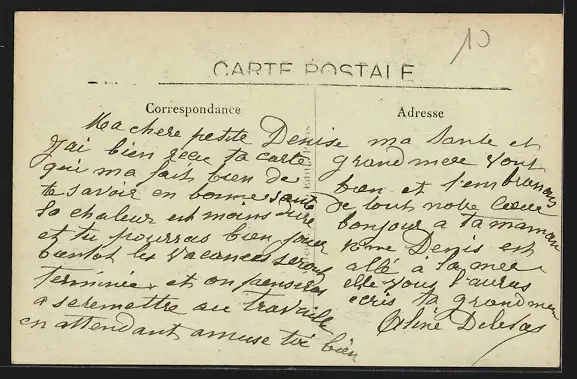 10
CARTE POSTALE
Correspondance
Adresse
Ma chere petite Denise
J'ai bien reçu ta carte
qui ma fait bien de
te savoir en bonne santé
la chaleur est moins dure
et tu pourras bien jouer
bientot les vacances seront
terminée et on pensera
a se remettre au travaille
en attendant amuse toi bien
ma tante et
grand mere vont
bien et t'embrasson
de tout notre Cœur
bonjour a ta maman
Denis est
allé à la mer
elle vous l'auras
ecris ta grand mer